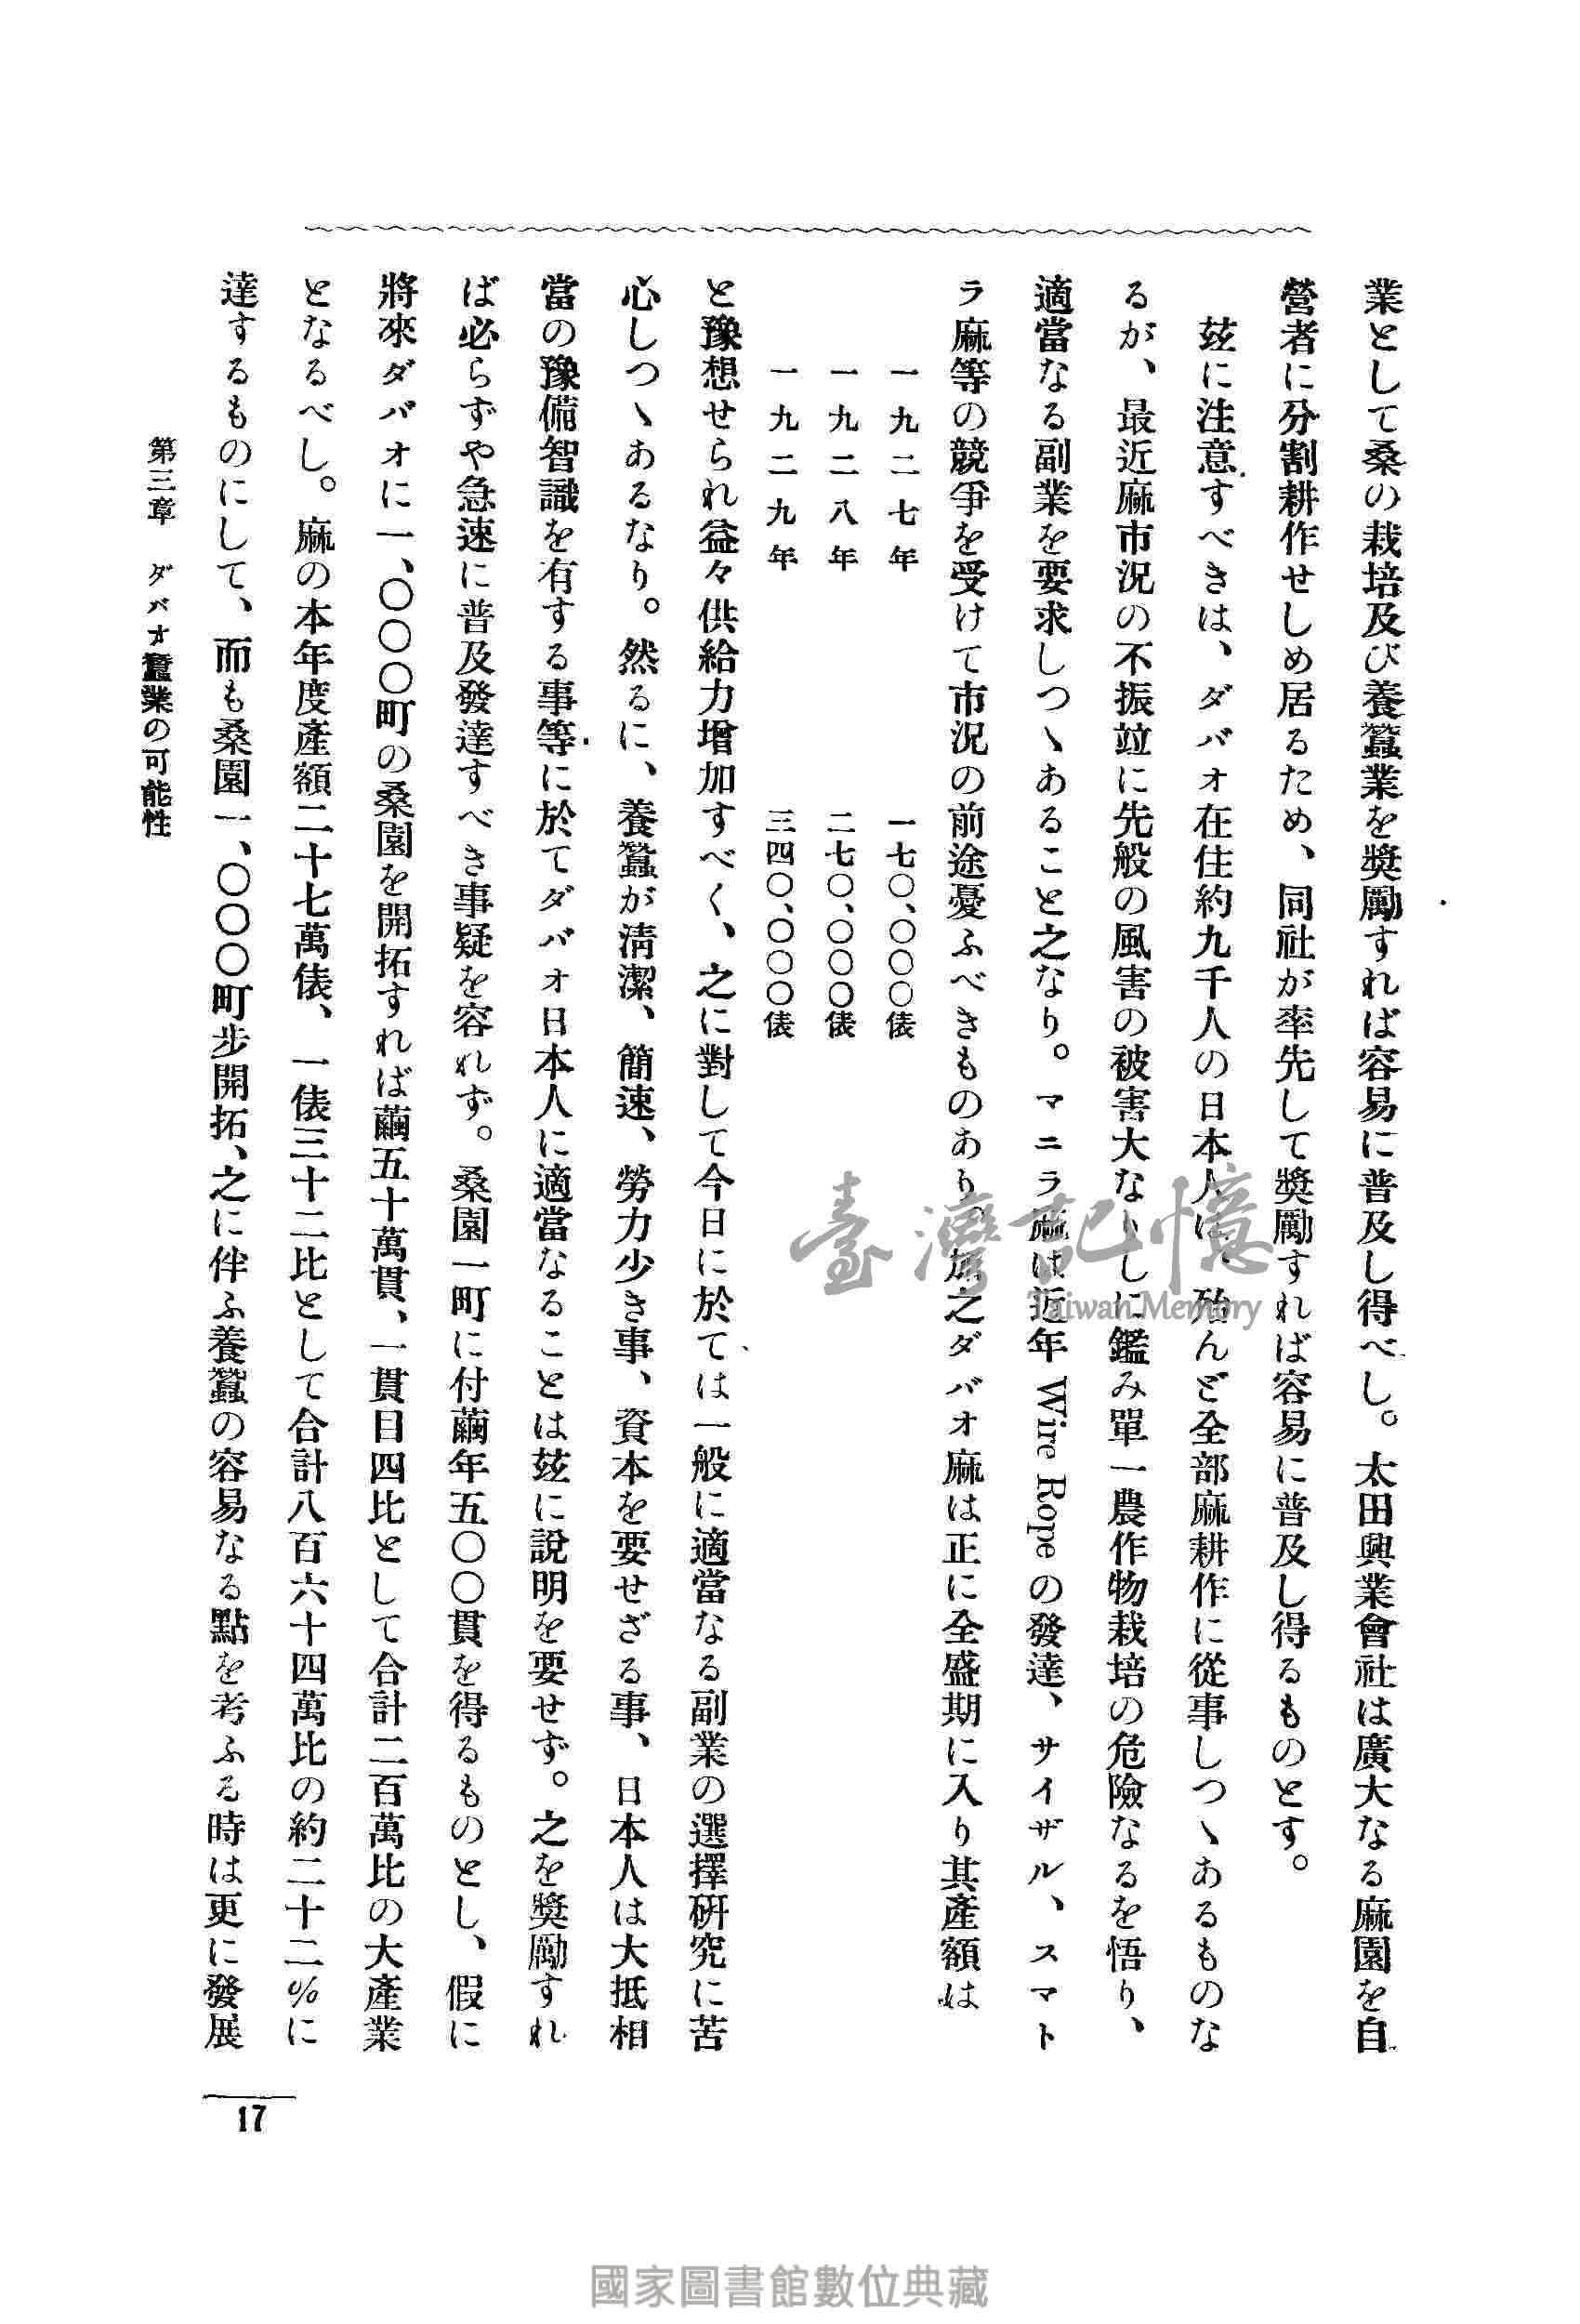 業として桑の栽培及び養蠶業を奬勵すれば容易に普及し得べし。太田興業會社は廣大なる麻園を自
營者に分割耕作せしめ居るため、同社が率先して奬勵すれば容易に普及し得るものとす。
玆に注意すべきは、ダバオ在住約九千人の日本人は、殆んど全部麻耕作に從事しつゝあるものな
るが、最近麻市況の不振竝に先般の風害の被害大なりしに鑑み單一農作物栽培の危險なるを悟り、
適當なる副業を要求しつゝあること之なり。マニラ麻は近年 Wire Rope の發達、サイザル、スマト
ラ麻等の競爭を受けて市況の前途憂ふべきものあり。加之ダバオ麻は正に全盛期に入り其產額は
一九二七年　一七〇、〇〇〇俵
一九二八年　二七〇、〇〇〇俵
一九二九年　三四〇、〇〇〇俵
と豫想せられ益々供給力增加すべく、之に對して今日に於ては一般に適當なる副業の選擇硏究に苦
心しつゝあるなり。然るに、養蠶が淸潔、簡速、勞力少き事、資本を要せざる事、日本人は大抵相
當の豫備智識を有する事等に於てダバオ日本人に適當なることは玆に說明を要せず。之を奬勵すれ
ば必らずや急速に普及發達すべき事疑を容れず。桑園一町に付繭年五〇〇貫を得るものとし、假に
將來ダバオに一、〇〇〇町の桑園を開拓すれば繭五十萬貫、一貫目四比として合計二百萬比の大產業
となるべし。麻の本年度產額二十七萬俵、一俵三十二比として合計八百六十四萬比の約二十二%に
達するものにして、而も桑園一、〇〇〇町步開拓、之に伴ふ養蠶の容易なる點を考ふる時は更に發展
第三章　ダバオ蠶業の可能性
17
臺灣記憶
Taiwan Memory
國家圖書館數位典藏